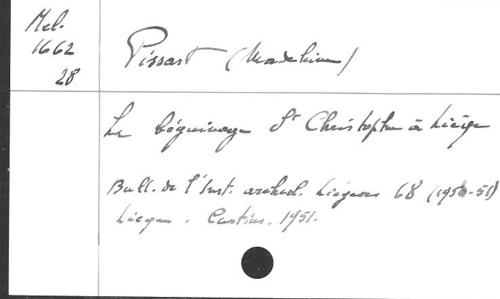 Mel.
1662
28
Pissart (Madeleine)
Le béguinage St Christophe à Liège
Bull. de l'Inst. archéol. Liégeois 68 (1950-51)
Liège. Curtius. 1951.